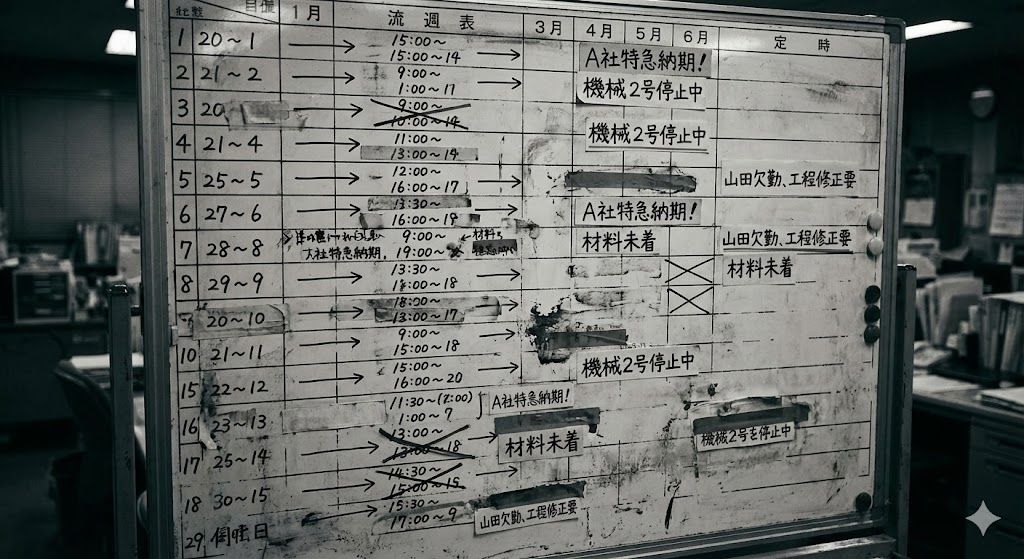 1月 流週表 3月 4月 5月 6月 定時
1 20~1 15:00~
15:00~14 A社特急納期!
2 21~2 9:00~
1:00~17 機械2号停止中
3 20 9:00~
10:00~14 機械2号停止中
4 21~4 11:00~
13:00~14
5 25~5 12:00~
16:00~17 山田欠勤、工程修正要
6 27~6 13:30~
16:00~19 A社特急納期!
7 28~8 9:00~ 材料未着 山田欠勤、工程修正要
特急納期. 19:00~ 材料未着
8 29~9 13:30~
18:00~18
20~10 18:00~
13:00~17
10 21~11 9:00~
15:00~18 機械2号停止中
15 22~12 15:00~
16:00~20
16 23~13 11:30~(2:00) A社特急納期!
1:00~7
17 25~14 13:00~ 材料未着 機械2号を停止中
13:00~18
18 30~15 14:30~
15:00~15
15:30~
17:00~9 山田欠勤、工程修正要
29 日